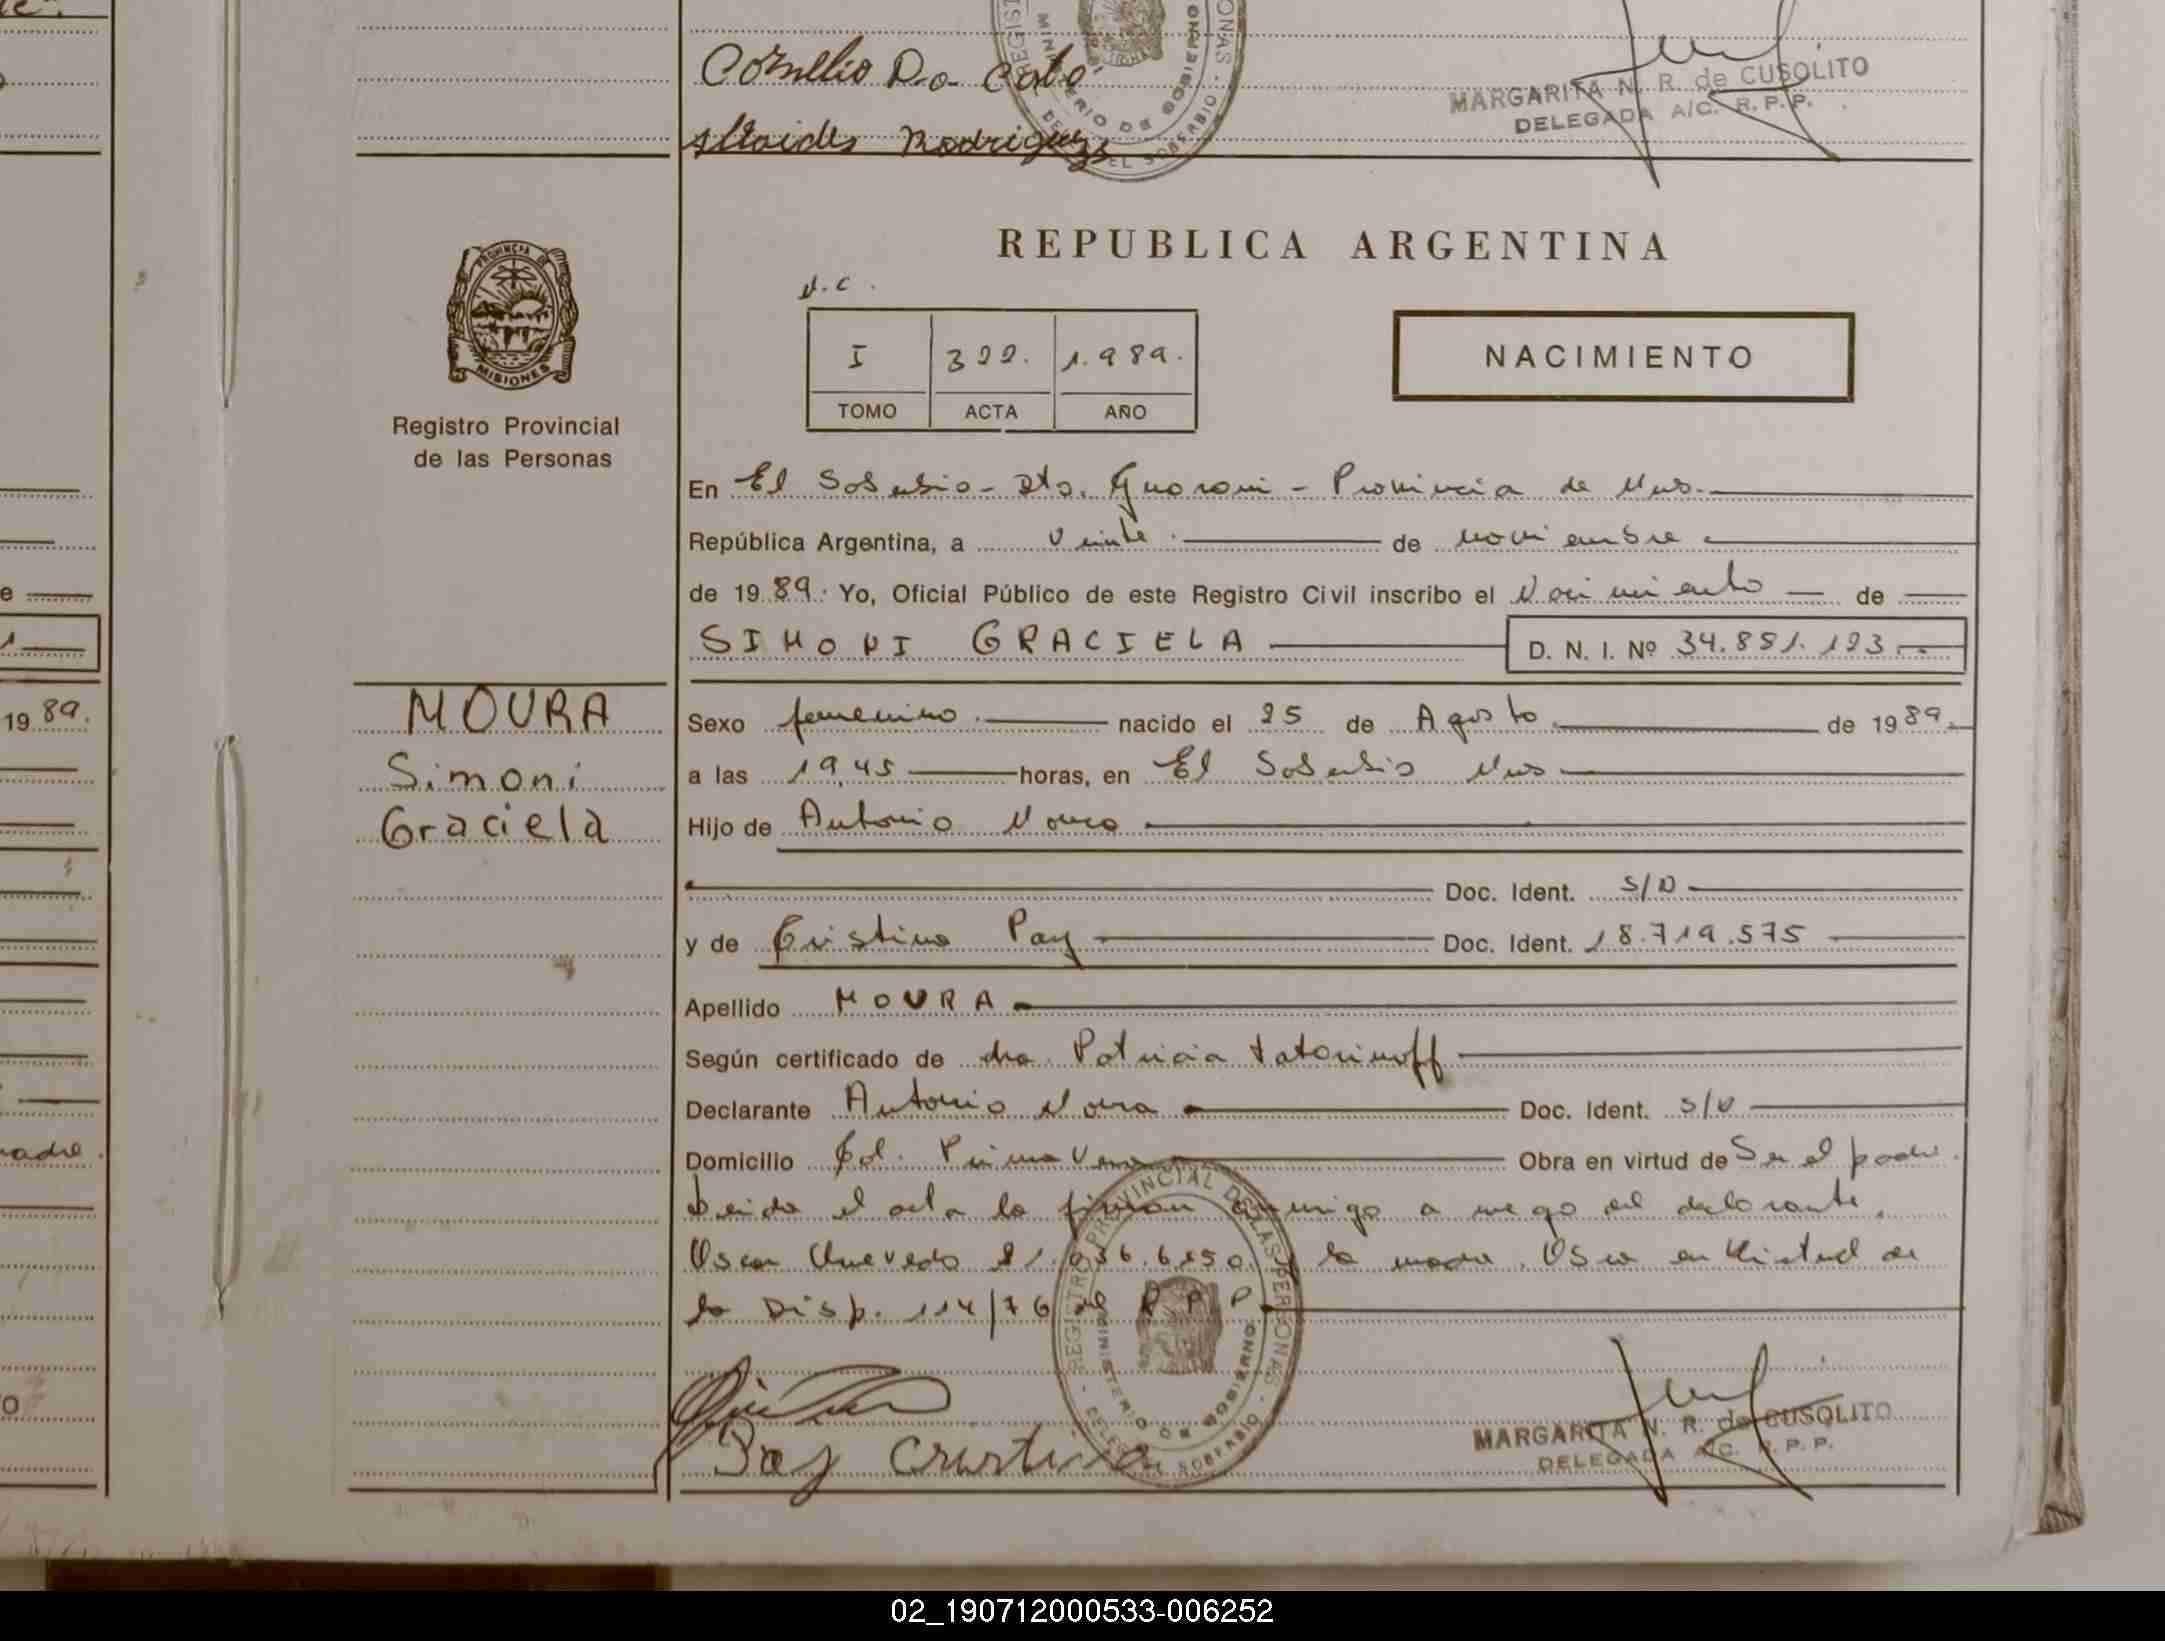 Cornelio Da
Alcides Rodriguez
MARGARITA N. R. de CUSOLITO
DELEGADA A/C. R. P. P.
PROVINCIA DE
MISIONES
Registro Provincial
de las Personas
REPUBLICA ARGENTINA
I 322. 1.989.
TOMO ACTA AÑO
NACIMIENTO
En El Soberbio - Dto. Guarani - Provincia de Mnes.
República Argentina, a Veinte. de noviembre
de 1989. Yo, Oficial Público de este Registro Civil inscribo el Nacimiento de
SIMONI GRACIELA D. N. I. Nº 34.881.123.
MOURA
Simoni
Graciela
Sexo femenino. nacido el 25 de Agosto de 1989.
a las 19,45 horas, en El Soberbio Mnes
Hijo de Antonio Moura
Doc. Ident. S/D
y de Cristina Pay Doc. Ident. 18.719.575
Apellido MOURA
Según certificado de dra. Patricia
Declarante Antonio Moura Doc. Ident. S/D
Domicilio Col. Primavera Obra en virtud de Ser el padre.
Leida el acta la firman conmigo a ruego del declarante,
Oscar la madre.
la Disp. 114/76 del R P P
REGISTRO PROVINCIAL DE LAS PERSONAS
MINISTERIO DE GOBIERNO
Cristina
MARGARITA N. R. de CUSOLITO
DELEGADA A/C. R. P. P.
1989.
madre.
02_190712000533-006252